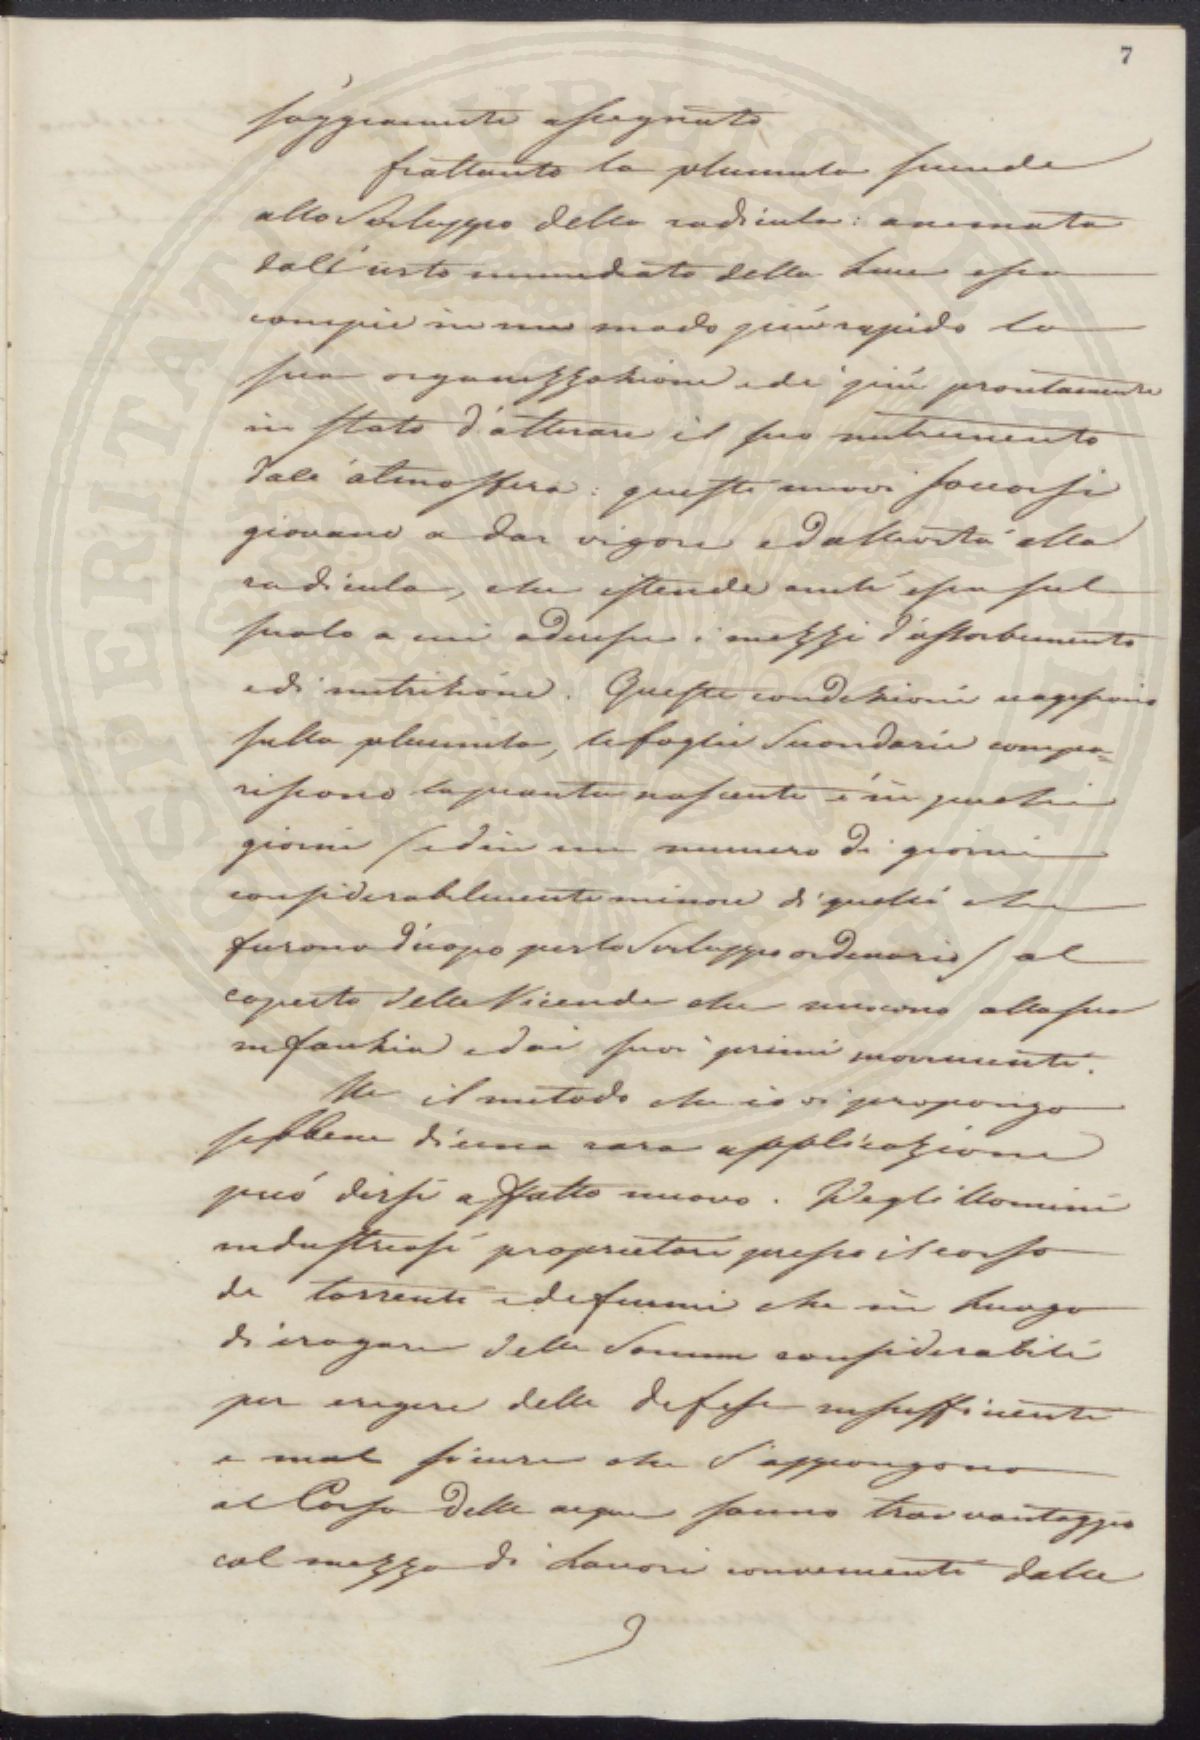 7
saggiamente assegnato
frattanto la plumula scende
allo sviluppo della radicula: animata
dall'urto immediato della Luce essa
compie in un modo più rapido la
sua organizzazione ed è più prontamente
in stato d'attirare il suo nutrimento
dall'atmosfera: questi nuovi soccorsi
giovano a dar vigore ed attività alla
radicula, che estende anch'essa sul
suolo a cui aderisce i mezzi d'assorbimento
e di nutrizione. Queste condizioni reagiscono
sulla plumula, le foglie secondarie compa=
riscono la pianta nascente è in pochi
giorni (ed in un numero di giorni
considerabilmente minore di quelli che
furono d'uopo per lo sviluppo ordinario) al
coperto delle Vicende che nuocono alla sua
infanzia ed ai suoi primi movimenti.
Ma il metodo che io vi propongo
sebbene di una rara applicazione
può dirsi affatto nuovo. Degli Uomini
industriosi proprietari presso il corso
de torrenti e de fiumi che in Luogo
di erogare delle Somme considerabili
per erigere delle difese insufficienti
e mal sicure che s'oppongono
al Corso delle acque sanno trar vantaggio
col mezzo di Lavori convenienti dalle